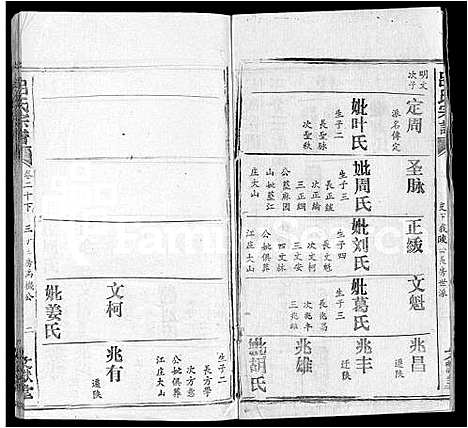 吕氏宗谱
明文次子
定周
派名傳定
妣叶氏
生子二
長聖脉
次聖秩
圣脉
妣周氏
生子三
長正綏
次正綸
三正綱
公墓麻園
山妣墓江
庄大山
正綏
妣刘氏
生子四
長文魁
次文柯
三文安
公妣俱葬
江庄大山
文魁
妣葛氏
生子三
長兆昌
次兆丰
三兆雄
兆昌
迁陝
兆丰
迁陝
兆雄
妣胡氏
吕氏宗譜
卷二十下
文柯
妣姜氏
兆有
遷陝
生子二
長方學
公妣俱葬
江庄大山